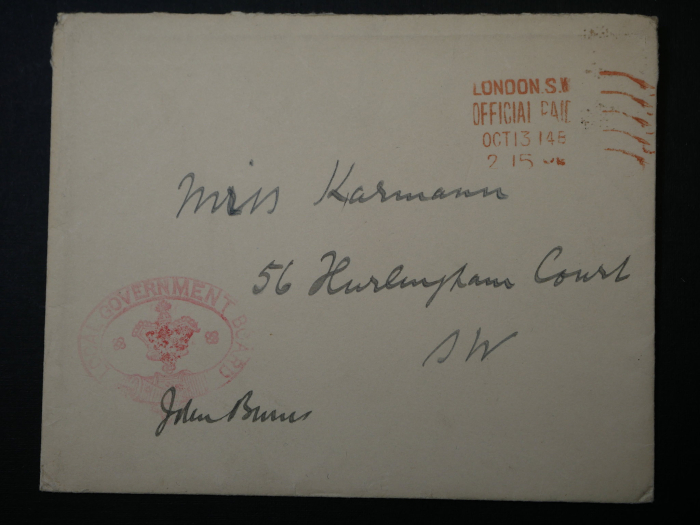 LONDON.S.W
OFFICIAL PAID
OCT 13 14B
2 15 PM
Miss Karmann
56 Hurlingham Court
SW
LOCAL GOVERNMENT BOARD
John Burns